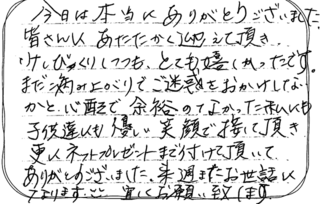 今日は本当にありがとうございました。
皆さんにあたたかく迎えて頂き
けしびっくりしつつも、とても嬉しかったです。
まだ病み上がりでご迷惑をおかけしない
かと心配で余裕のてなかった私にも
子供達にも優しい笑顔で接して頂き
更にネットプレゼントまで付けて頂いて
ありがとうございました。来週またお世話に
なります。宜しくお願い致します。